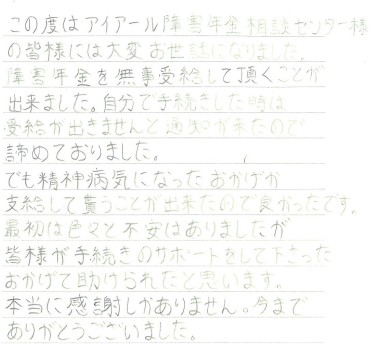 この度はアイアール障害年金相談センター様
の皆様には大変お世話になりました。
障害年金を無事受給して頂くことが
出来ました。自分で手続きした時は
受給が出きませんと通知が来たので
諦めておりました。
でも精神病気になったおかげか
支給して貰うことが出来たので良かったです。
最初は色々と不安はありましたが
皆様が手続きのサポートをして下さった
おかげで助けられたと思います。
本当に感謝しかありません。今まで
ありがとうございました。